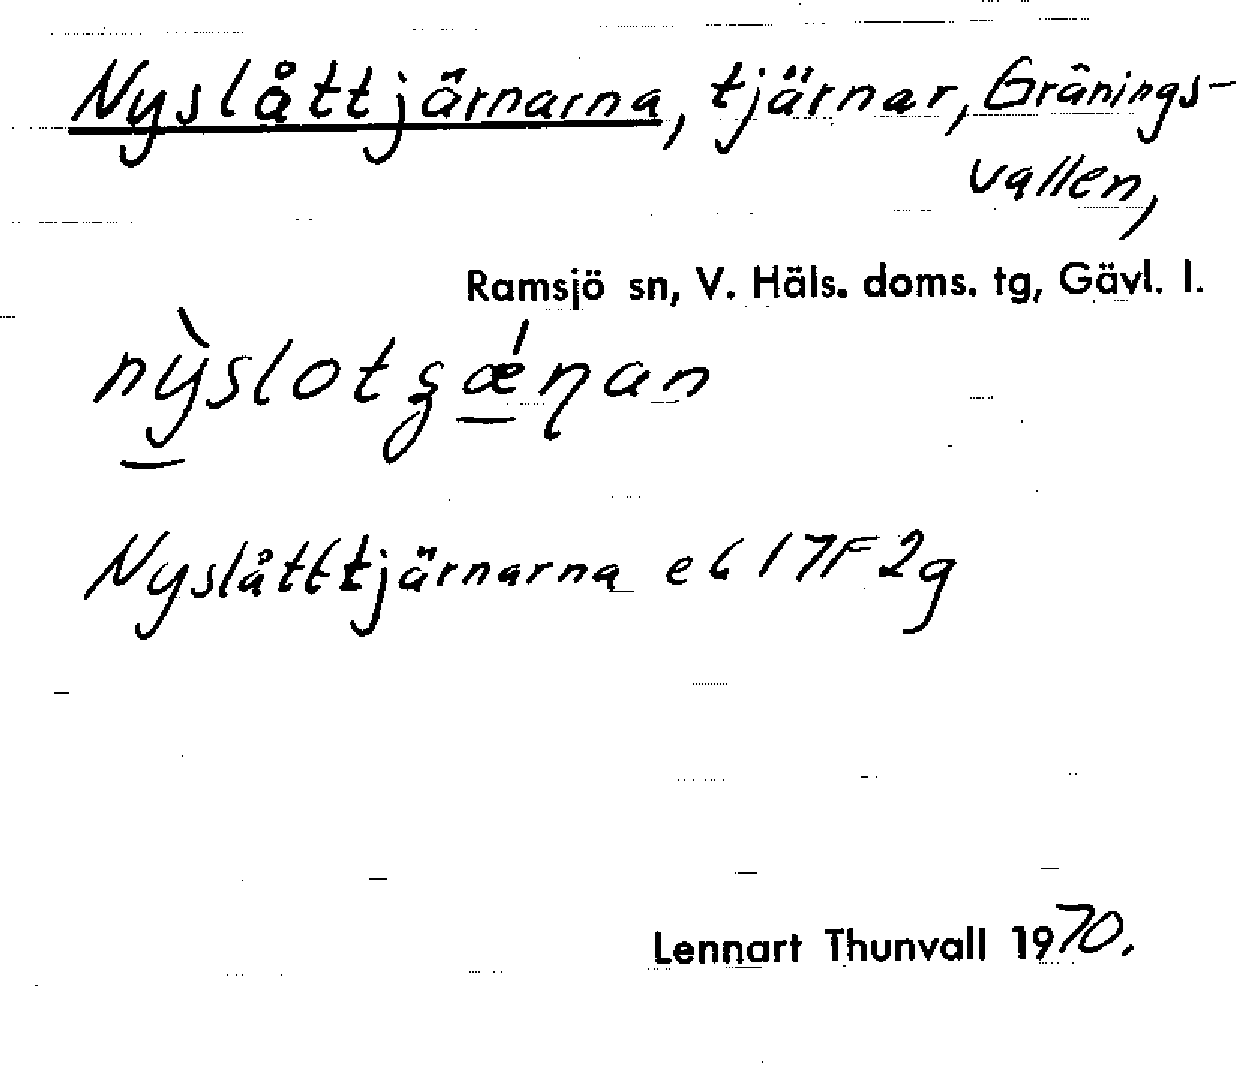 Nyslåttjärnarna, tjärnar, Gränings-
vallen,
Ramsjö sn, V. Häls. doms. tg, Gävl. l.
Nyslåtttjärnarna eb 17F2g
Lennart Thunvall 1970.